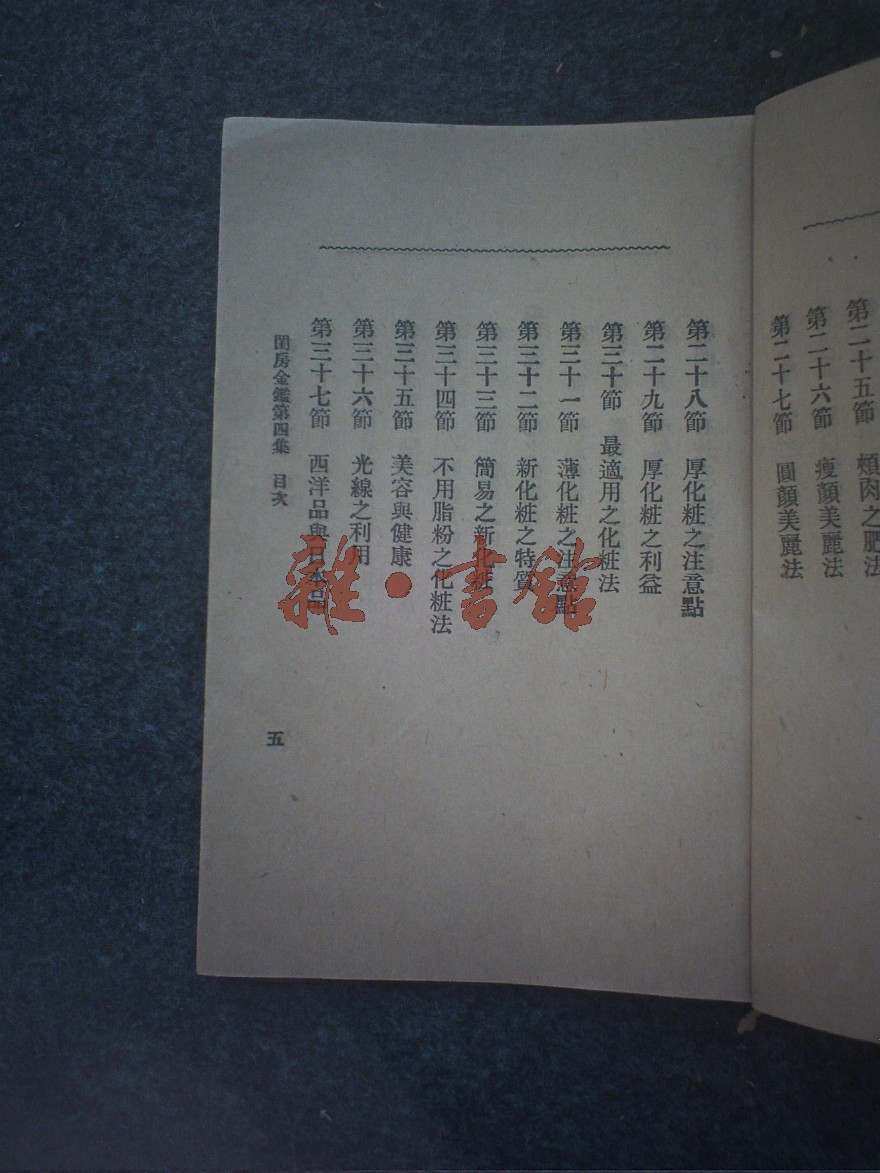 第二十五節　頰肉之肥法
第二十六節　瘦顏美麗法
第二十七節　圓顏美麗法
第二十八節　厚化粧之注意點
第二十九節　厚化粧之利益
第三十節　最適用之化粧法
第三十一節　薄化粧之注意點
第三十二節　新化粧之特質
第三十三節　簡易之新化粧
第三十四節　不用脂粉之化粧法
第三十五節　美容與健康
第三十六節　光線之利用
第三十七節　西洋品與日本品
閨房金鑑第四集　目次
五
雜·書館